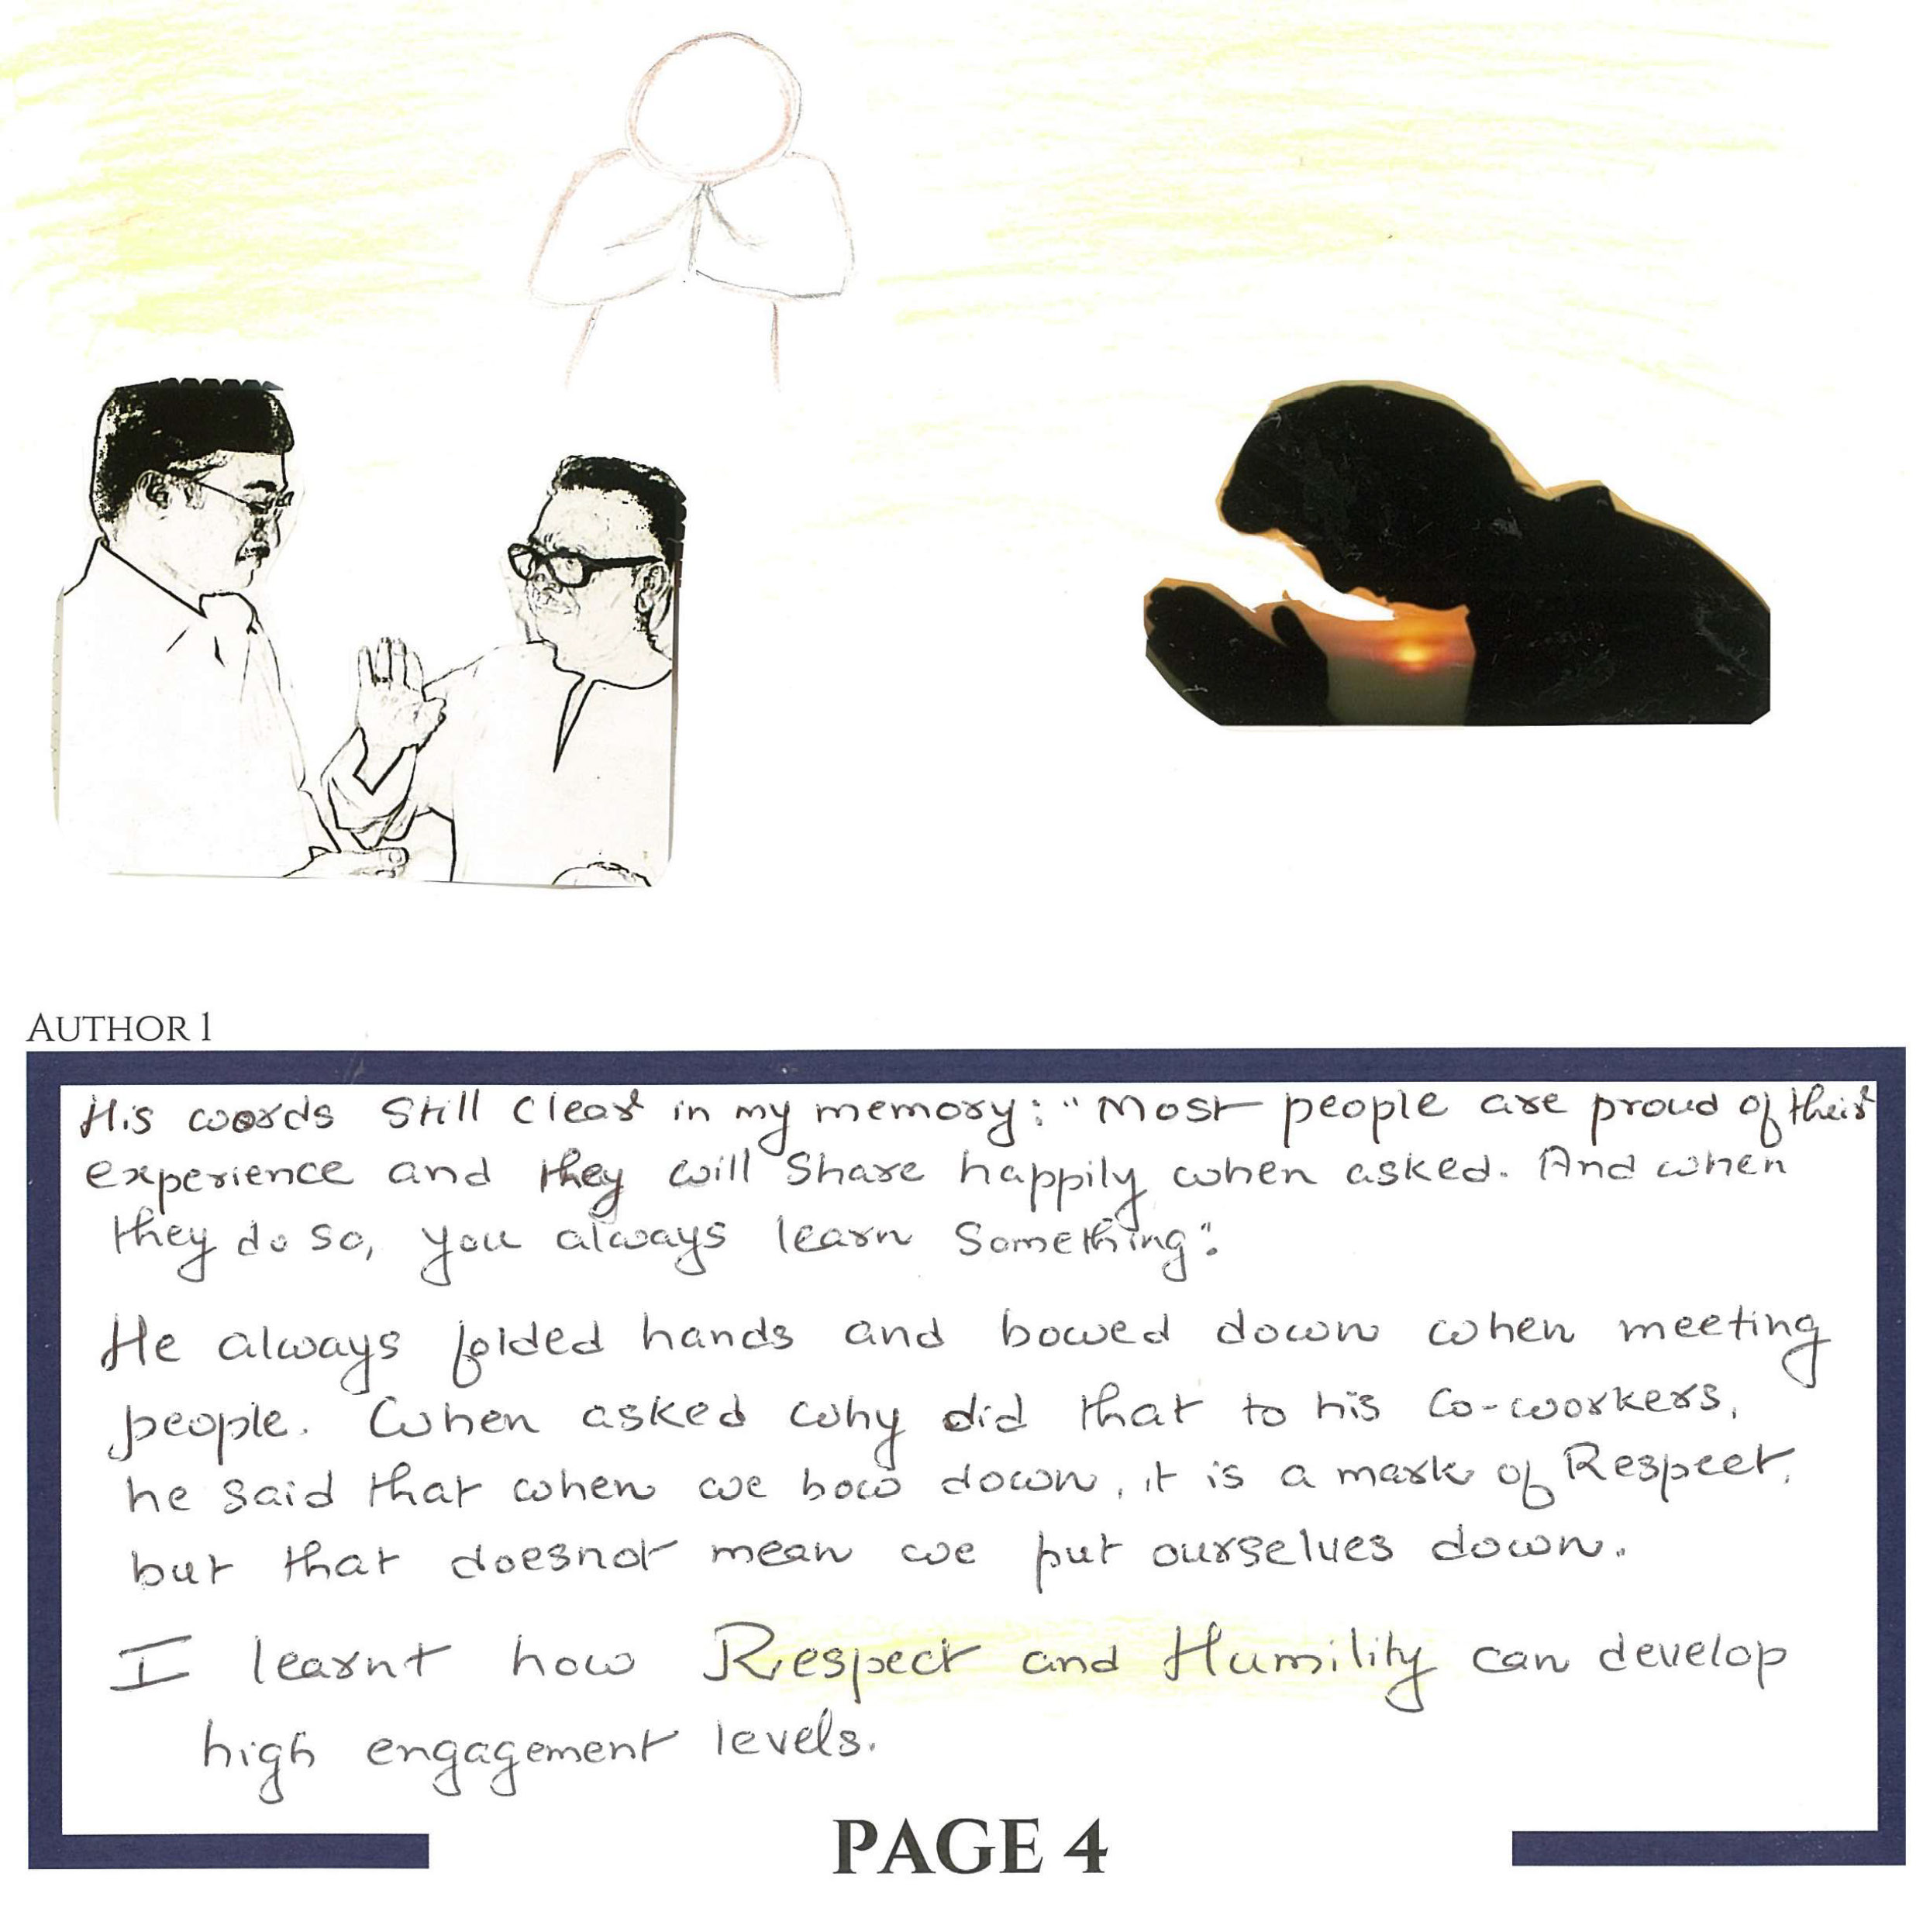 AUTHOR 1
His words still clear in my memory: "Most people are proud of their
experience and they will share happily when asked. And when
they do so, you always learn something".
He always folded hands and bowed down when meeting
people. When asked why did that to his co-workers,
he said that when we bow down, it is a mark of Respect,
but that doesnot mean we put ourselves down.
I learnt how Respect and Humility can develop
high engagement levels.
PAGE 4